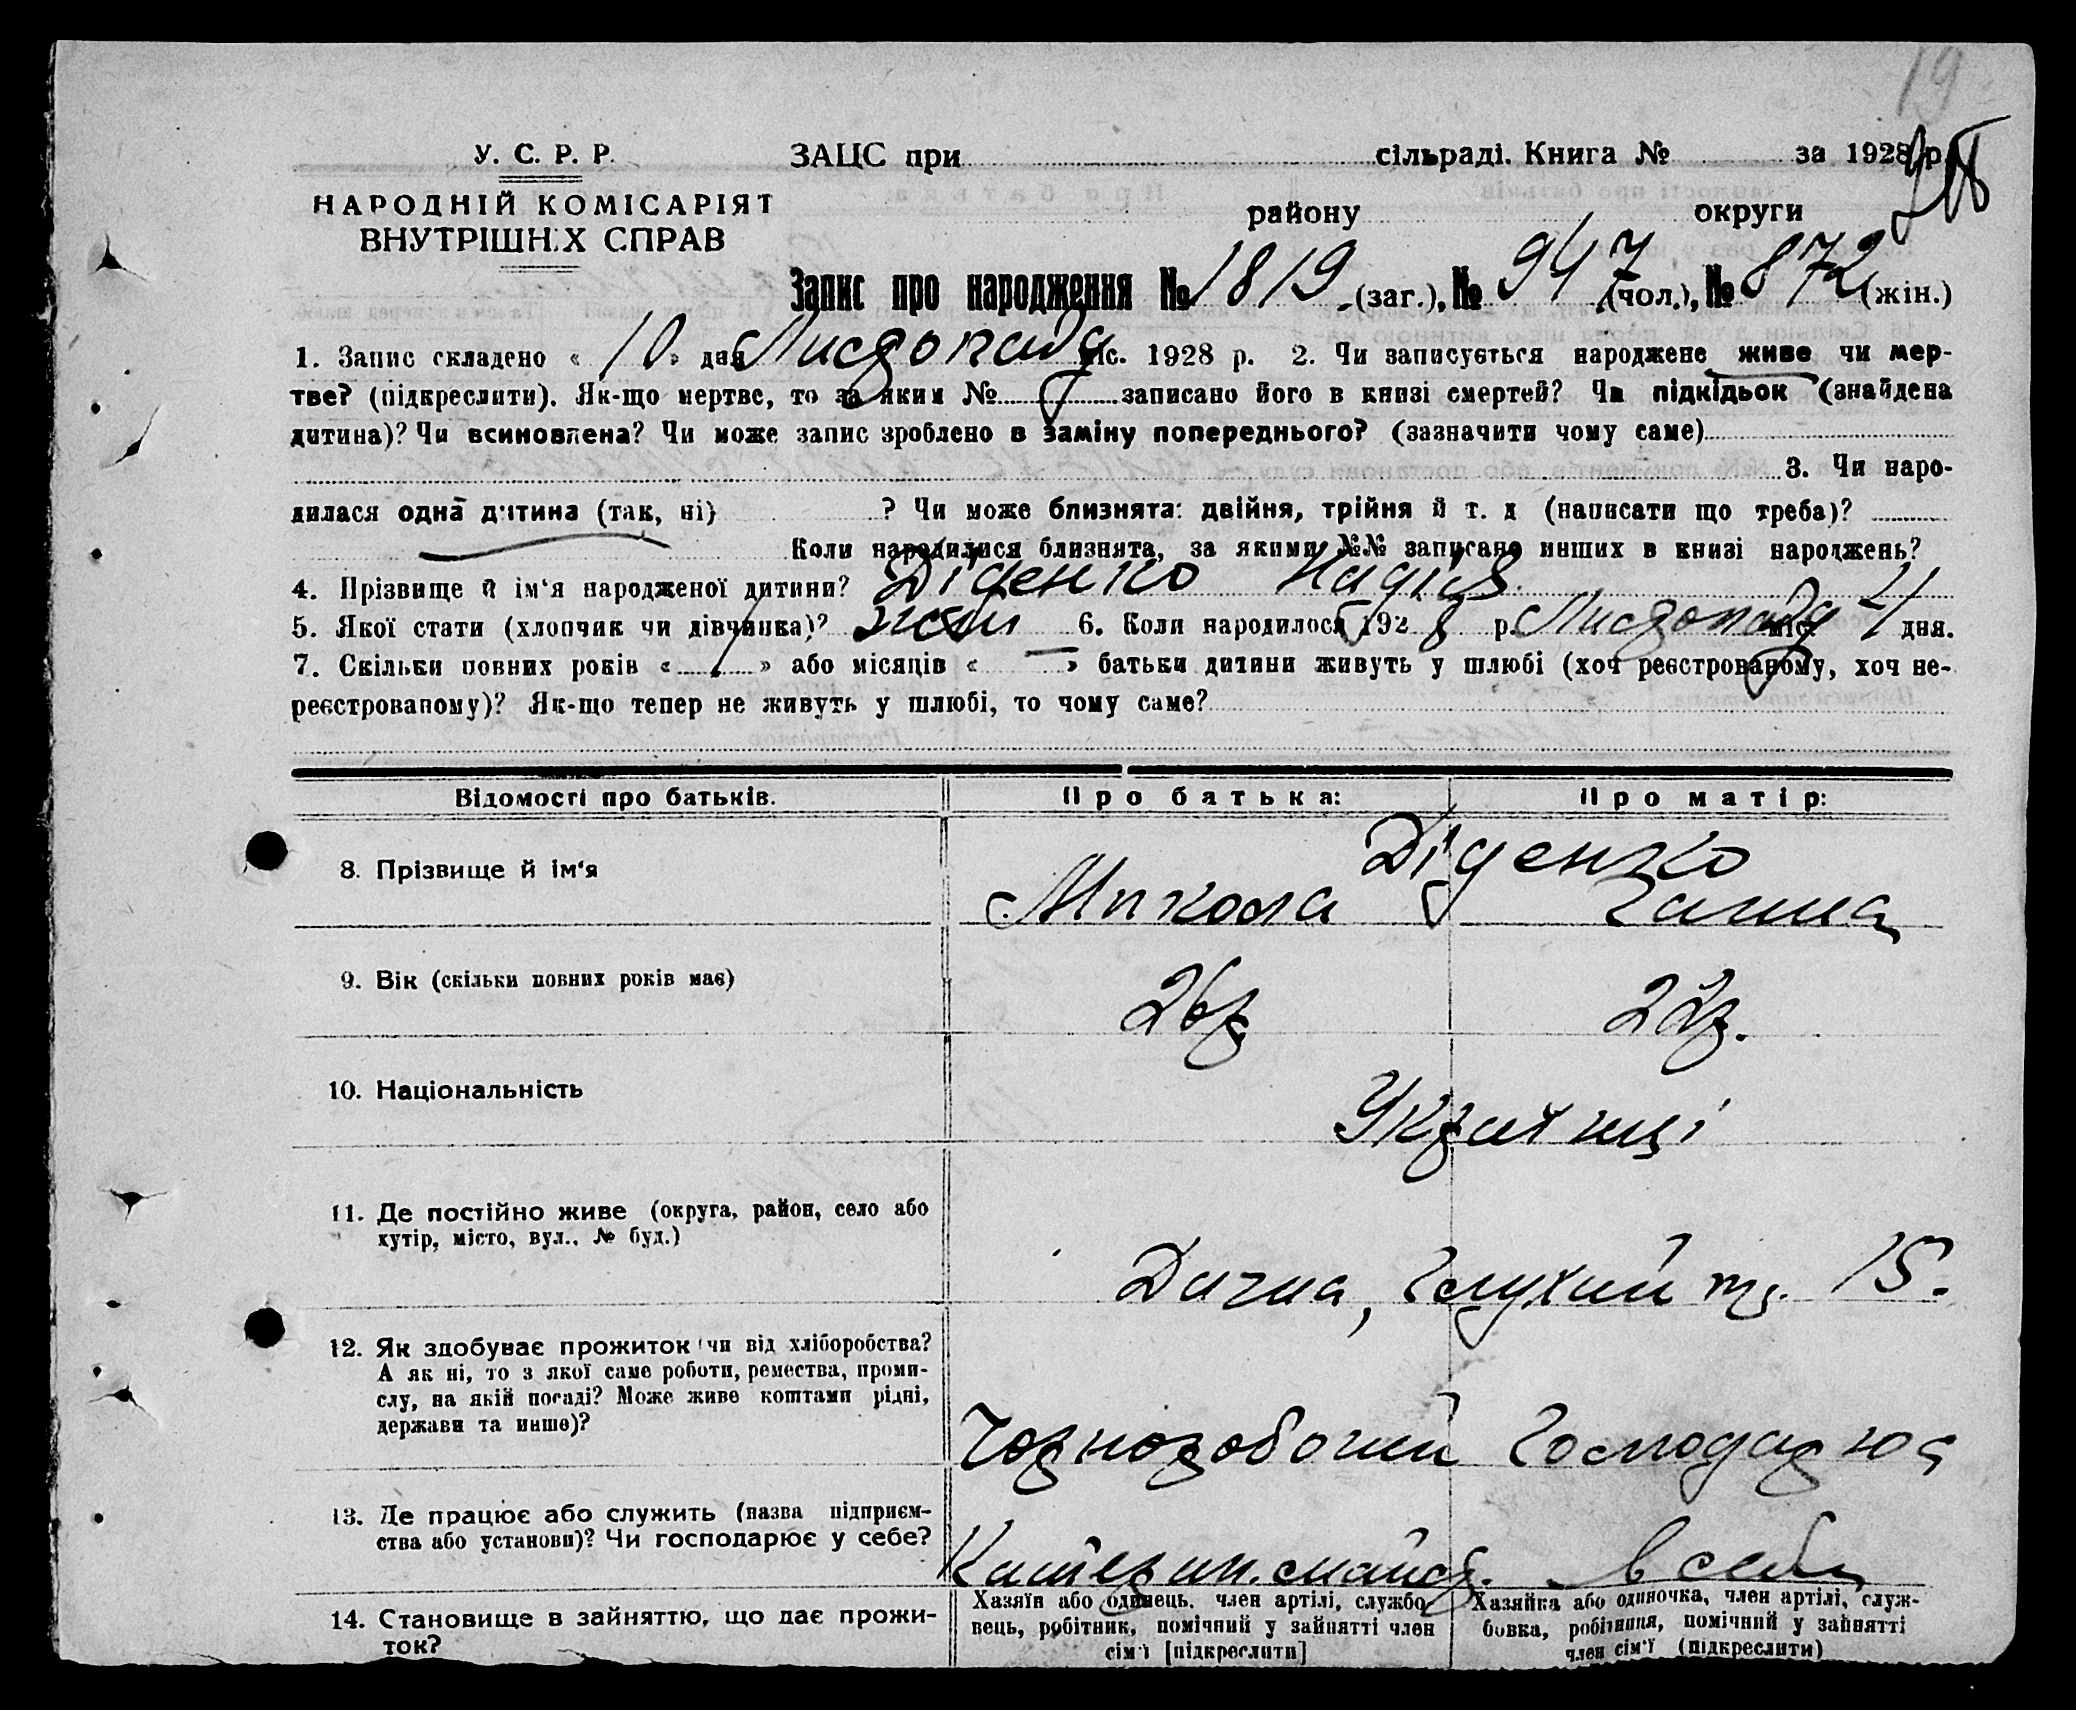 19
У. С. Р. Р.
ЗАЦС при сільраді. Книга № за 1928 р.
НАРОДНІЙ КОМІСАРІЯТ
ВНУТРІШНІХ СПРАВ
району округи
Запис про народження № 1819 (заг.), № 947 (чол.), № 872 (жін.)
1. Запис складено « 10 » дня Листопада міс. 1928 р. 2. Чи записується народжене живе чи мер-
тве? (підкреслити). Як-що мертве, то за яким № записано його в книзі смертей? Чи підкідьок (знайдена
дитина)? Чи всиновлена? Чи може запис зроблено в заміну попереднього? (зазначити чому саме)
3. Чи наро-
дилася одна дитина (так, ні) ? Чи може близнята: двійня, трійня й т. д (написати що треба)?
Коли народилися близнята, за якими №№ записано инших в книзі народжень?
4. Прізвище й ім‘я народженої дитини? Діденко Надія
5. Якої стати (хлопчик чи дівчинка)? жін 6. Коли народилося 1928 р. Листопада міс. 4 дня.
7. Скільки повних років « 1 » або місяців « — » батьки дитини живуть у шлюбі (хоч реєстрованому, хоч не-
реєстрованому)? Як-що тепер не живуть у шлюбі, то чому саме?
Відомості про батьків. Про батька: Про матір:
Діденко
8. Прізвище й ім‘я Микола Ганна
9. Вік (скільки повних років має) 26р 22р.
10. Національність Українці
11. Де постійно живе (округа, район, село або
хутір, місто, вул., № буд.) Дична, Глухий пр. 15.
12. Як здобуває прожиток чи від хліборобства?
А як ні, то з якої саме роботи, ремества, проми-
слу, на якій посаді? Може живе коштами рідні,
держави та инше)? Чорноробочий Господарює
13. Де працює або служить (назва підприєм-
ства або установи)? Чи господарює у себе? Катерин. в себе
14. Становище в зайняттю, що дає прожи-
ток?
Хазяїн або одинець, член артілі, службо-
вець, робітник, помічний у зайнятті член
сім‘ї [підкреслити]
Хазяйка або одиночка, член артілі, служ-
бовка, робітниця, помічний у зайнятті
член сім‘ї (підкреслити)